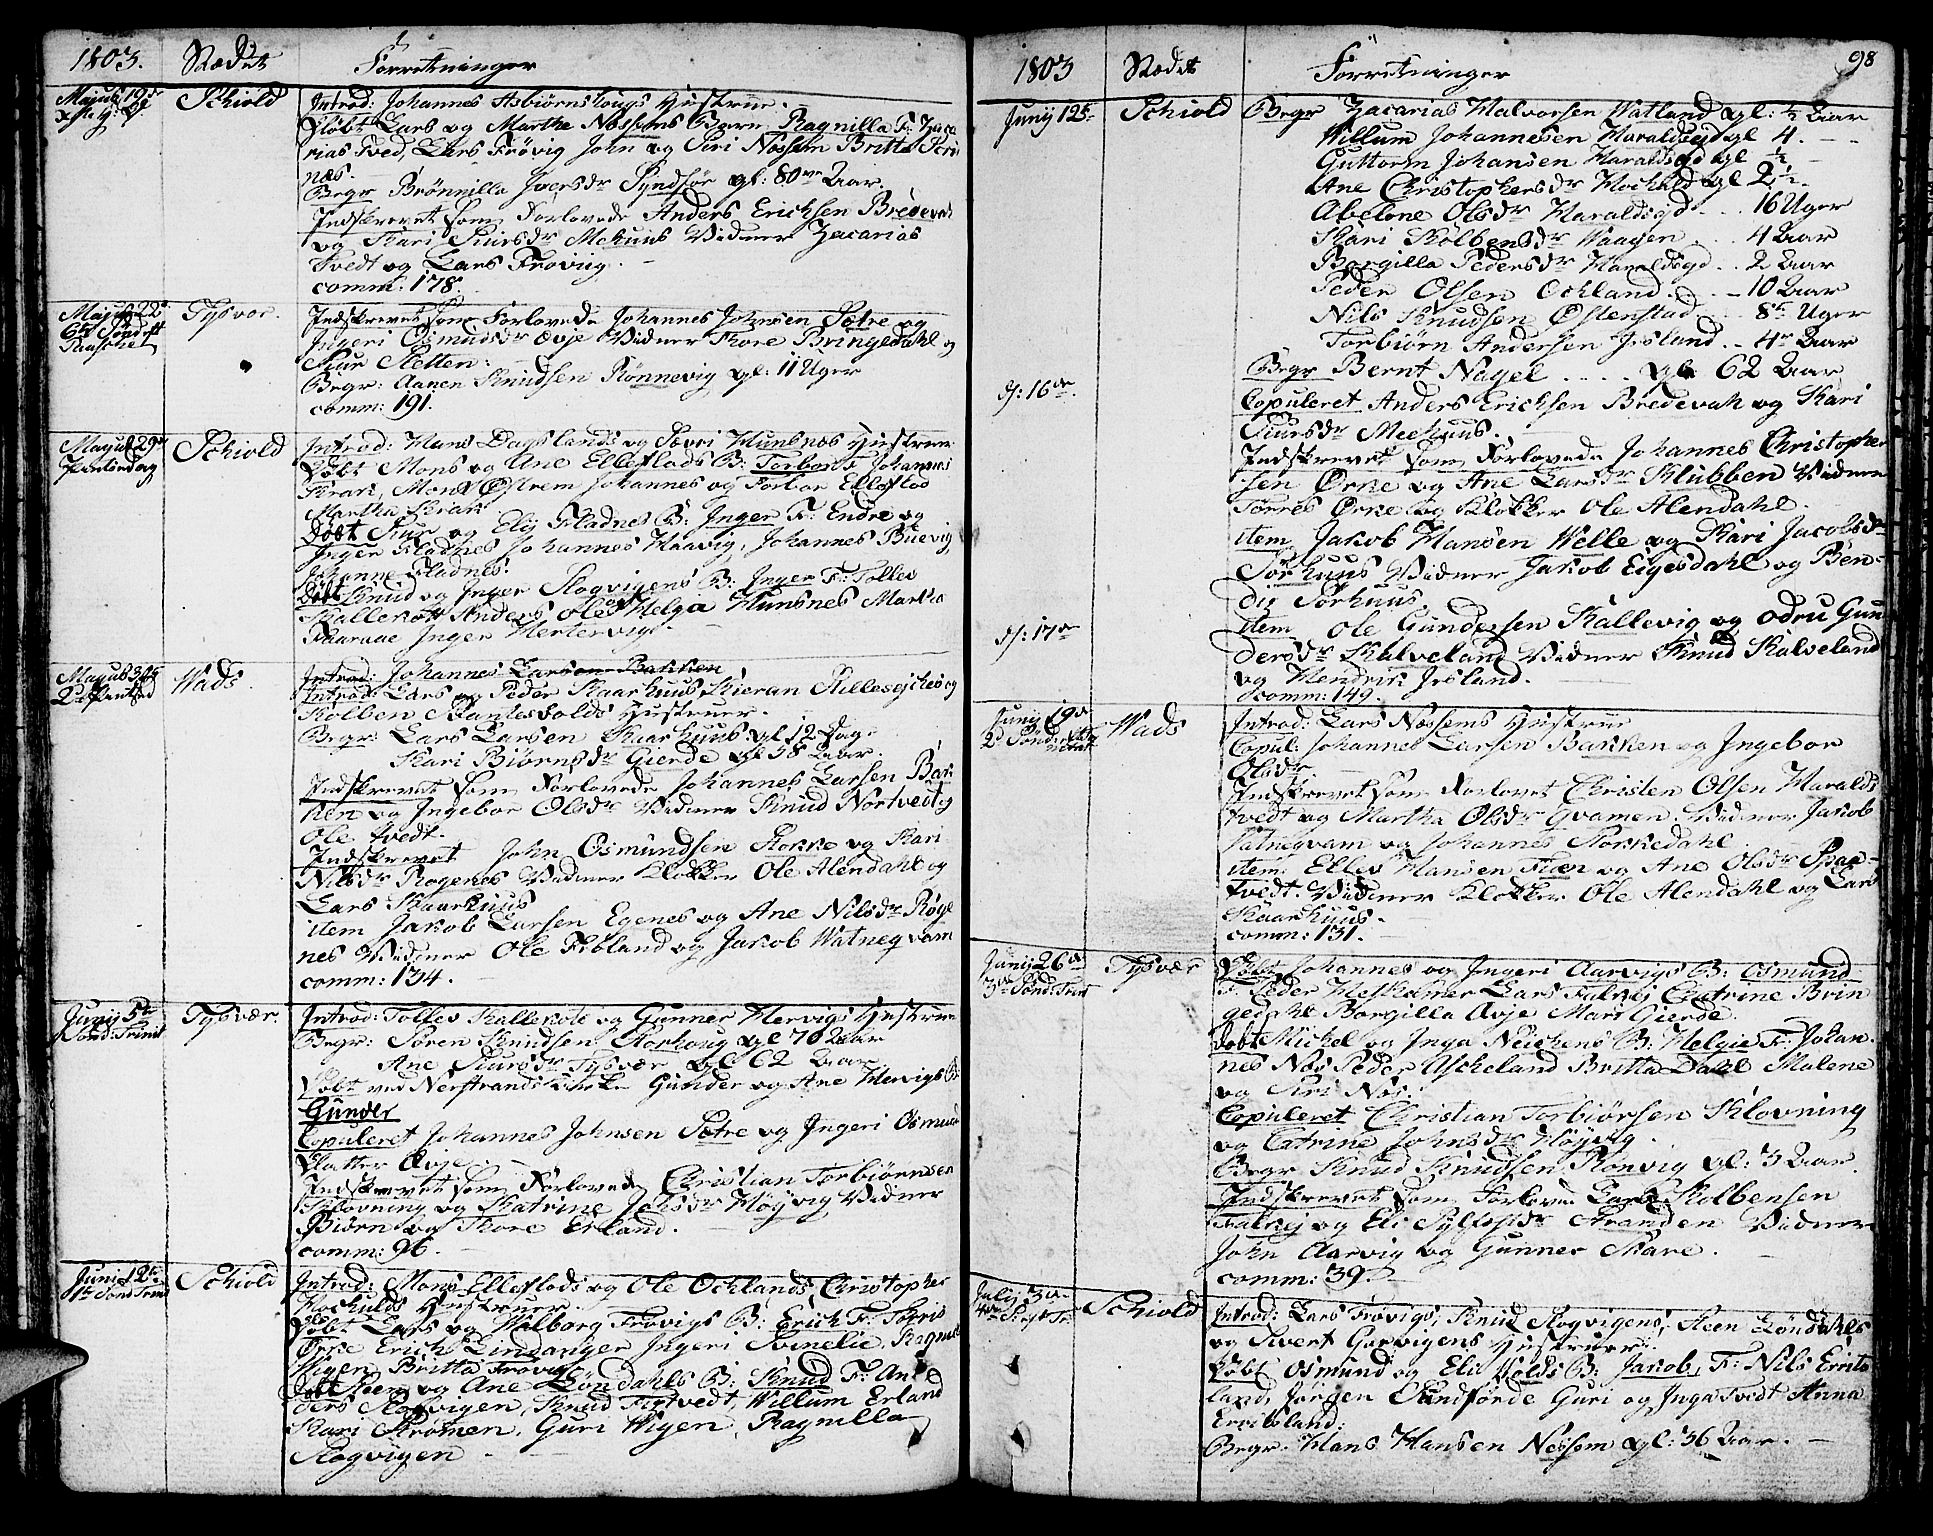 1803. Stædet Forretninger
Majus 19de Schiold Introd: Johannes Asbiørnshougs Hustrue.
Døbt Lars og Marthe Nessems Barn Ragnilla F: Zaca
rias Tved, Lars Frøvig John og Siri Nessem Britta
næs.
Begr Brønnilla Iversdr Syndføe gl: 80 Aar.
Indskrevet som Forlovede Anders Erichsen Bredevah
og Kari Siursdr Mekuus Vidner Zacarias
Tvedt og Lars Frøviig.
comm: 178.
Majus 22de Tysvær. Indskrevet som Forlovede Johannes Johnsen Sætre og
Ingeri Osmundsdr Øvje Vidner Thore Bringedahl og
Siur Sletten.
Begr: Aanen Knudsen Rønnevig gl: 11 Uger
comm: 191.
Majus 29de Schiold Introd: Hans Dagslands og Hunsnes Hustruer
Pintsedag Døbt Mons og Ane Elleflads B: Torbor F: Johannes
Krak, Mons Østrem Johannes og Torbor Elleflad
Martha Krak
Døbt Siur og Eli Fladnes B: Inger F: Endre og
Inger Fladnes Johannes Haavig, Johannes Buevig
Johanne Fladnes.
Døbt Knud og Inger Slogvigens B: Inger F: Tollev
Kallekott Anders Ole og Helga Hunsnes Martha
Inger Hertervig.
Majus 30te Wads. Introd: Johannes Larsen Bakken
2d Pintsed Introd: Lars og Peder Skaarhuus Kieran Killesejches og
Kolben Hustruer.
Begr: Lars Larsen Skaarhuus gl 12 Dage
Kari Biørnsdr Gierde gl 58 Aar.
Indskrevet som Forlovede Johannes Larsen Bak
ken og Ingebor Olsdr Vidner Knud Nortvedt og
Ole Tvedt.
Indskrevet John Osmundsen Stokke og Kari
Nilsdr Rogenes Vidner Klokker Ole Alendahl og
Lars Skaarhuus
item Jakob Larsen Egenes og Ane Nilsdr Røge
nes Vidner Ole Frøland og Jakob Watneqvam
comm: 134.
Junij 5te Tysvær. Introd: Tollev Kallekote og Gunner Hervigs Hustruer
Sønd: Trinit Begr: Søren Knudsen Storhoug gl 70 Aar
Ane Siursdr Tysvær gl 62 Aar.
Døbt ved Nerstrands Kirke Gunder og Ane Hervigs B:
Gunder
Copuleret Johannes Johnsen Setre og Ingeri Osmund
Datter Øvje
Indskrevet som Forlovede Christian Torbiørnsen
Klovning og Katrine Johsdr Høyvig Vidner
Biørn og Thore Erland.
comm: 96.
Junij 12te Schiold Introd: Mons Elleflads og Ole Ochlands Christopher
1te Sønd Trinit Hochulds Hustruer.
Døbt Lars og Walborg Frøvigs B: Erich F: Torris
Ørke Erich Lindanger Ingeri Svinelie, Ragnild
Wigen Britta Frøvig
Døbt Steen og Ane Løndahls B: Knud F: An
ders Slogvigen, Knud Tirtvedt, Willum Erland
Kari Strømen, Guri Wigen, Ragnilla
Slogvigen
1803 Stædet Forretninger 98
Junij 12te Schiold Begr Zacarias Halvorsen Watland gl: ½ Aar
Willum Johannesen Haraldsgd gl 4.
Guttorm Johansen Haraldsgd gl ½
Ane Christophersdr Hochuld gl 2½
Abelone Olsdr Haraldsgd 16 Uger
Kari Kolbensdr Waagen 4 Aar
Borgilla Pedersdr Haraldsgd 2 Aar
Peder Olsen Ochland 10 Aar
Nils Knudsen Østenstad 8te Uger
Torbiørn Andersen Irsland 4re Aar
Begr Bernt Nagel gl 62 Aar
d: 16de Copuleret Anders Erichsen Bredevah og Kari
Siursdr Meehuus.
Indskrevet som Forlovede Johannes Christopher
sen Ørke og Ane Larsdr Klubben Vidner
Torres Ørke og Klokker Ole Alendahl.
item Jakob Hansen Welle og Kari Jacobsdr
Sørhuus Vidner Jakob Eigesdahl og Ben-
dix Sørhuus
d: 17de item Ole Gundersen Kallevig og Odru Gun
dersdr Skalveland Vidner Knud Skalveland
og Hendrik Irsland.
comm: 149.
Junij 19de Wads Introd: Lars Nessems Hustrue
2d Sønd: Copul: Johannes Larsen Bakken og Ingebor
Olsdr
Indskrevet som Forlovet Christen Olsen Haralds
tvedt og Martha Olsdr Qvamen Vidner Jakob
Vatneqvam og Johannes Stokkedahl
item Ellev Hansen Fiæn og Ane Olsdr
tvedt. Vidner Klokker Ole Alendahl og Lars
Skaarhuus.
comm: 131.
Junij 26de Tysvær Døbt Johannes og Ingeri Aarvigs B: Osmund
3de Sønd: Trint F: Peder Heskamer Lars Falkej Catrine Brin
gedahl Borgilla Øvje Mari Gierde.
Døbt Michel og Inga Neichens B: Helgie F: Johan
nes Nes Peder Ascheland Britta Dahl Malene
og Siri Nes
Copuleret Christian Torbiørsen Klovning
og Catrine Johnsdr Høyvig.
Begr Knud Knudsen Rønvig gl: 3 Aar.
Indskrevet som Forlovede Lars Kolbensen
Falkej og Eli Sylfestdr Stranden Vidner
John Aarvig og Gunner Skare.
comm: 39.
Julij 3de Schiold Introd: Lars Frøvigs, Knud Slogvigens, Steen Løndahls
og Sivert Garvigens Hustruer.
Døbt Osmund og Eli Volds B: Jakob, F: Nils Errits
land, Jørgen Sundførde Guri og Inga Tvedt Anna
Erritsland.
Begr. Hans Hansen Nessem gl: 36 Aar.